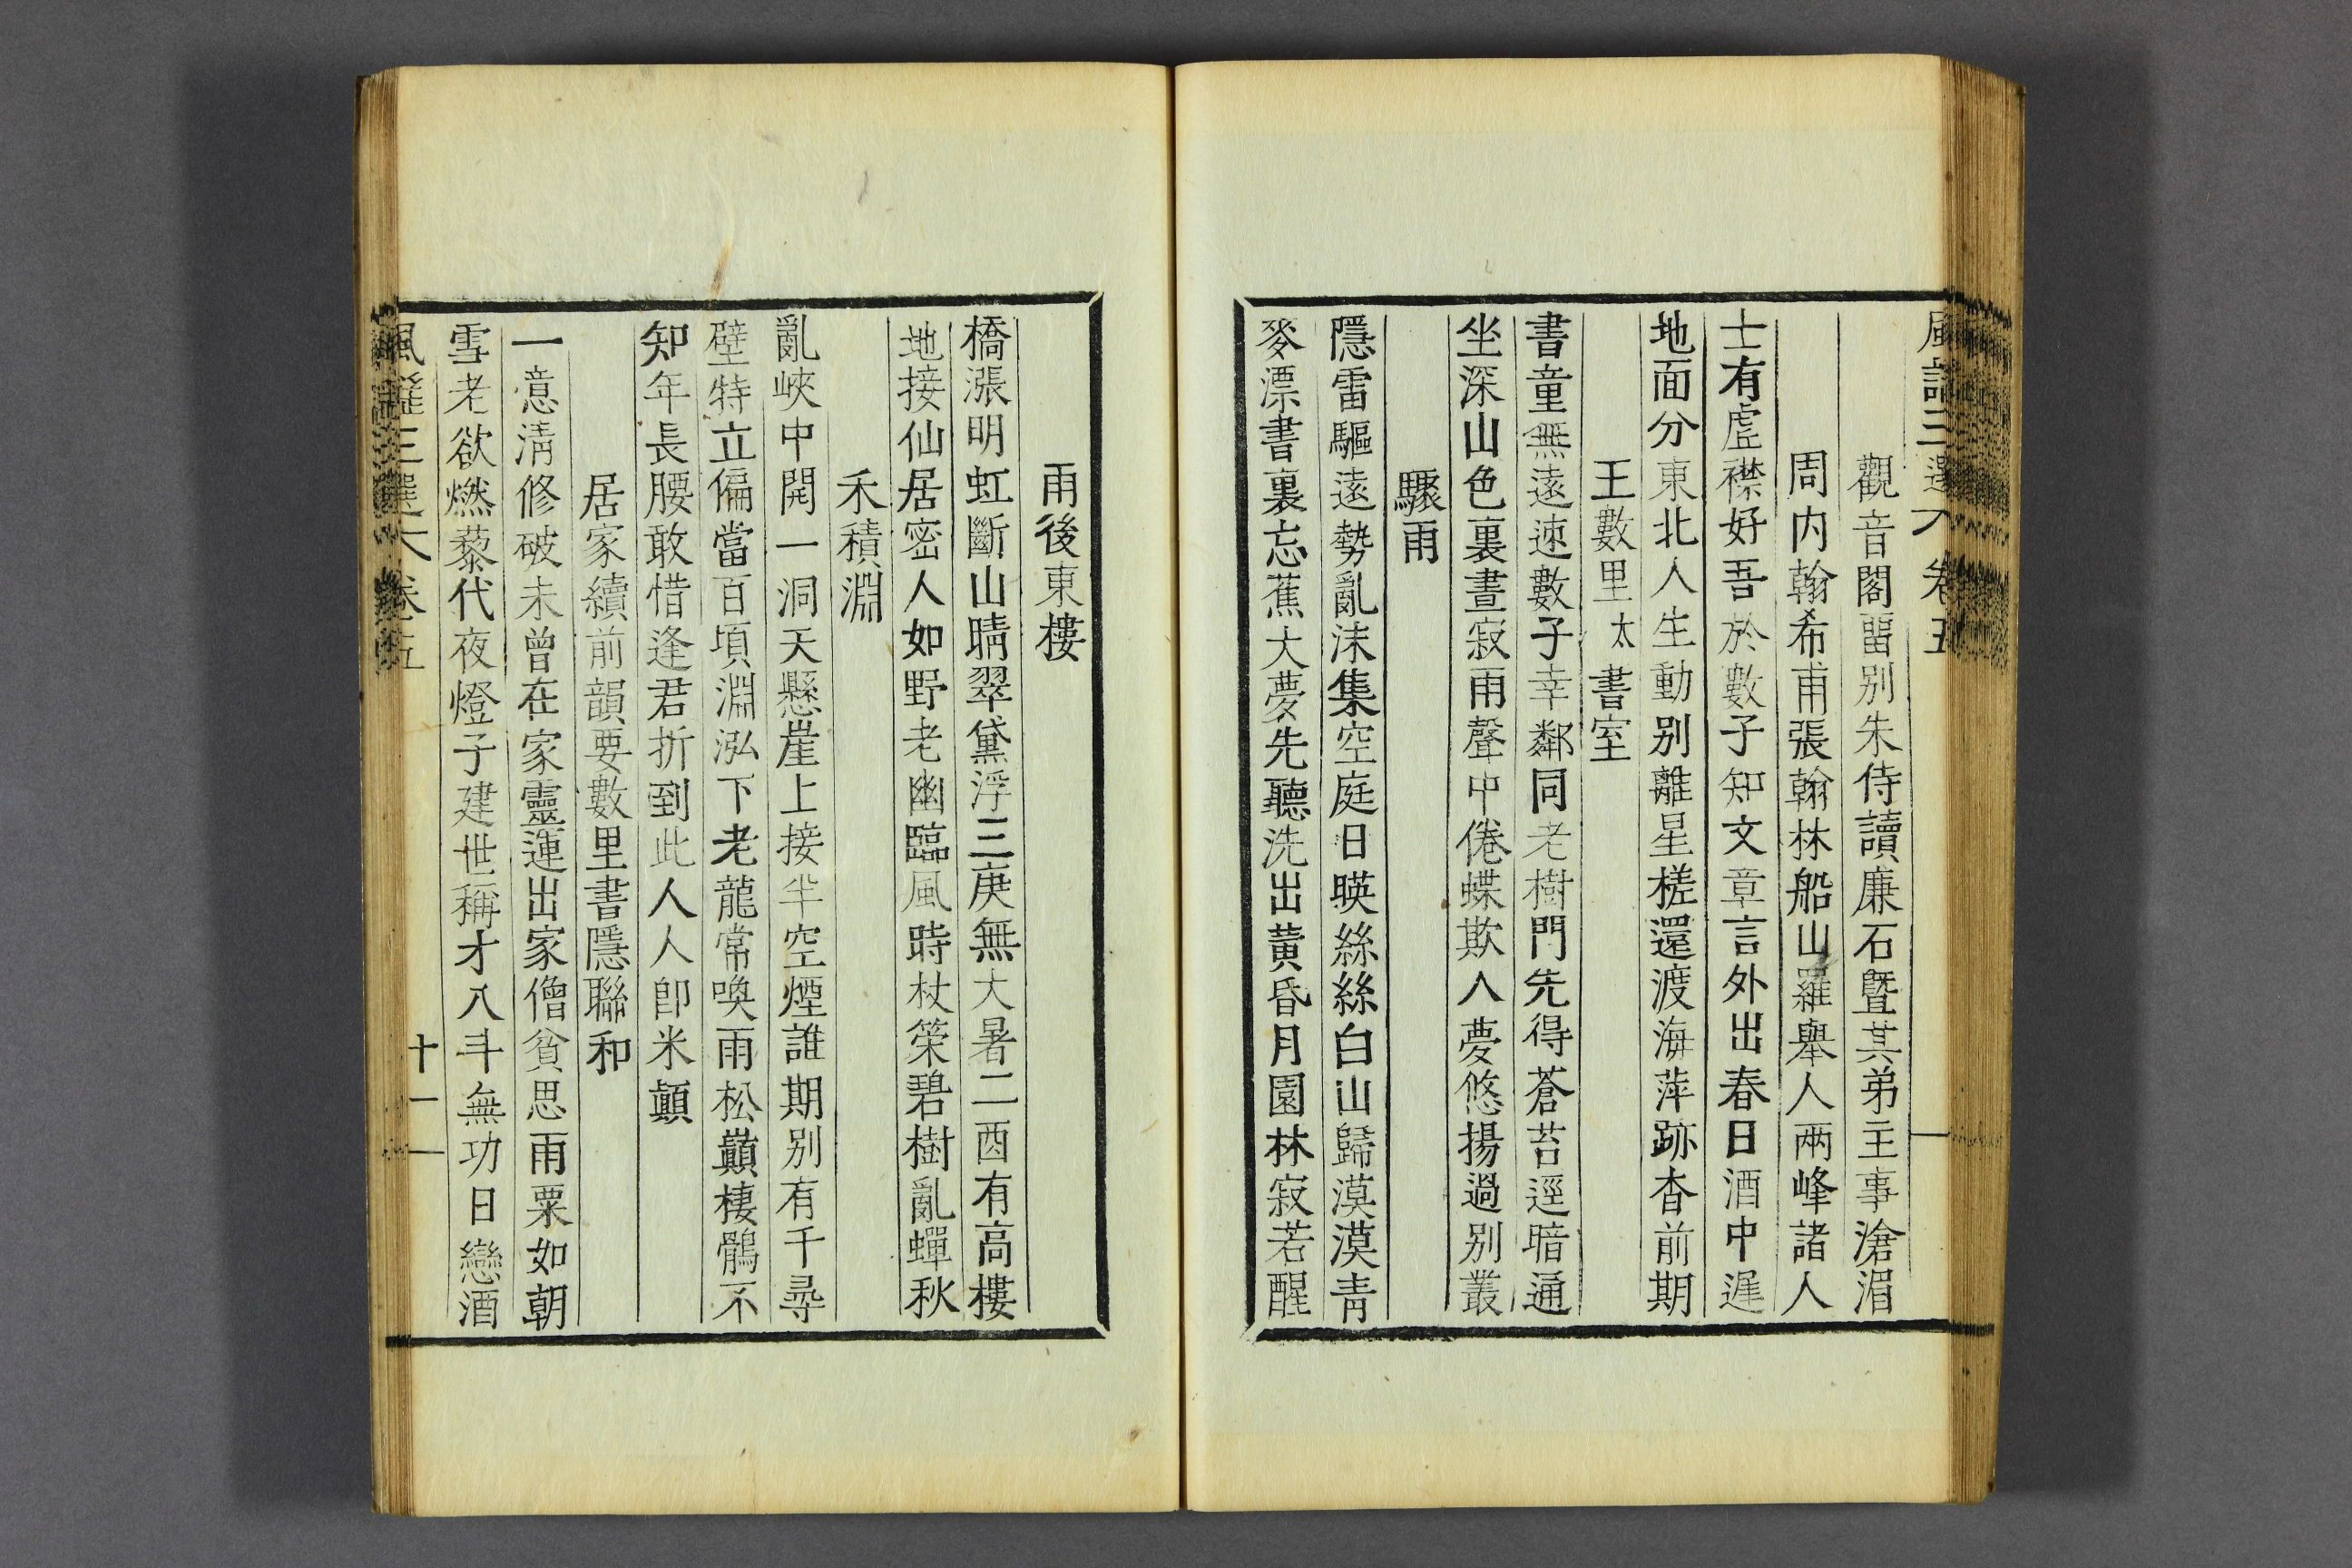 風謠三選 卷五
觀音閣留別朱侍讀廉石曁其弟主事滄湄
周内翰希甫張翰林船山羅擧人兩峰諸人
士有虛襟好吾於數子知文章言外出春日酒中遲
地面分東北人生動別離星槎還渡海萍跡杳前期
王數里太書室
書童無遠迹數子幸鄰同老樹門先得蒼苔逕暗通
坐深山色裏晝寂雨聲中倦蝶欺人夢悠揚過別叢
驟雨
隱雷驅遠勢亂沫集空庭日暎絲絲白山歸漠漠靑
麥漂書裏忘蕉大夢先聽洗出黃昏月園林寂若醒
雨後東樓
橋漲明虹斷山晴翠黛浮三庚無大暑二酉有高樓
地接仙居密人如野老幽臨風時杖策碧樹亂蟬秋
禾積淵
亂峽中開一洞天懸崖上接半空煙誰期別有千尋
壁特立偏當百頃淵泓下老龍常喚雨松巓棲鶻不
知年長腰敢惜逢君折到此人人卽米顚
居家續前韻要數里書隱聯和
一意淸修破未曾在家靈運出家僧貧思雨粟如朝
雪老欲燃藜代夜燈子建世稱才八斗無功日戀酒
風謠三選 卷五
十一